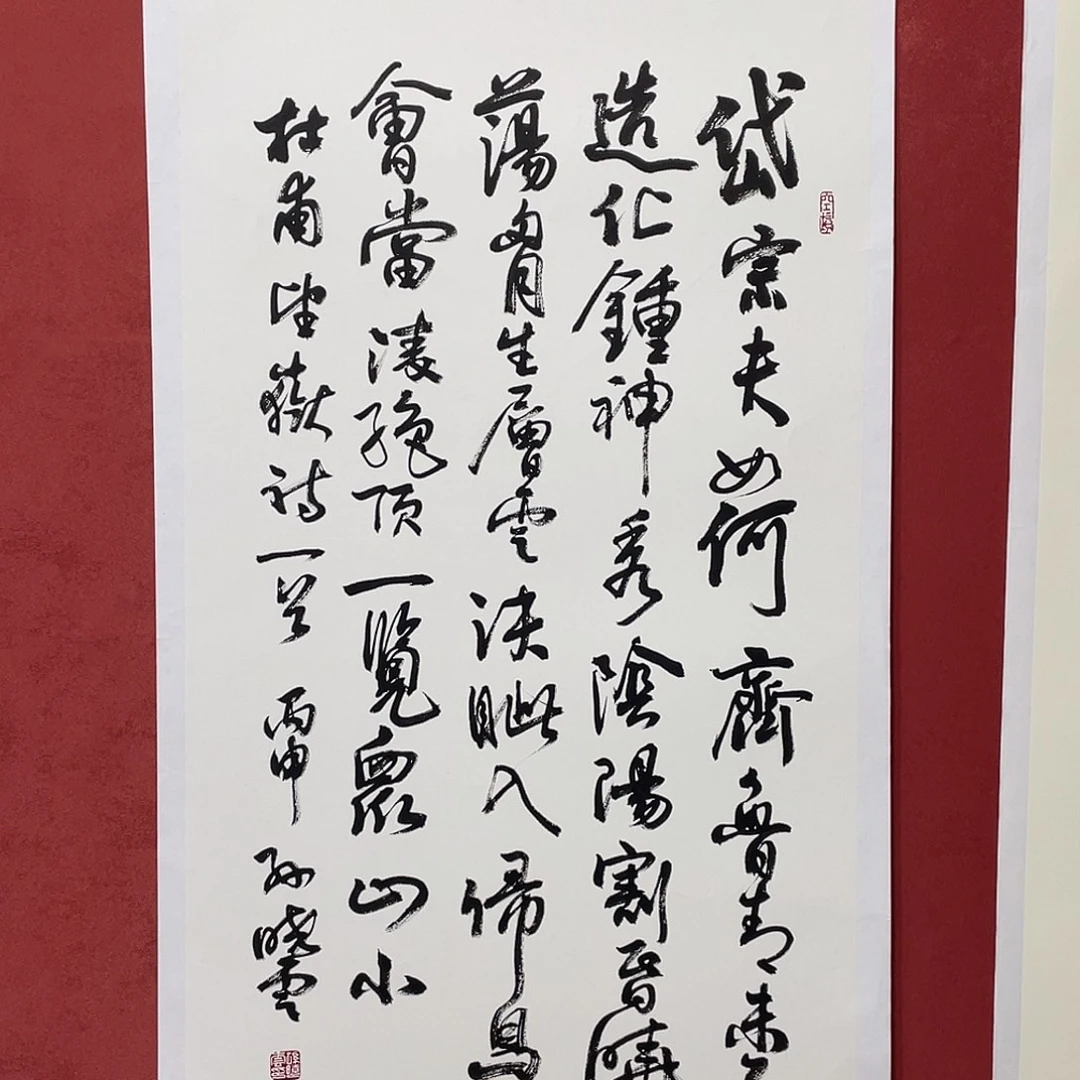 岱宗夫如何齊魯青未
造化鍾神秀陰陽割昏曉
蕩胷生層雲決眦入歸鳥
會當凌絕頂一覽眾山小
杜甫望嶽詩一首 丙申 孫曉雲